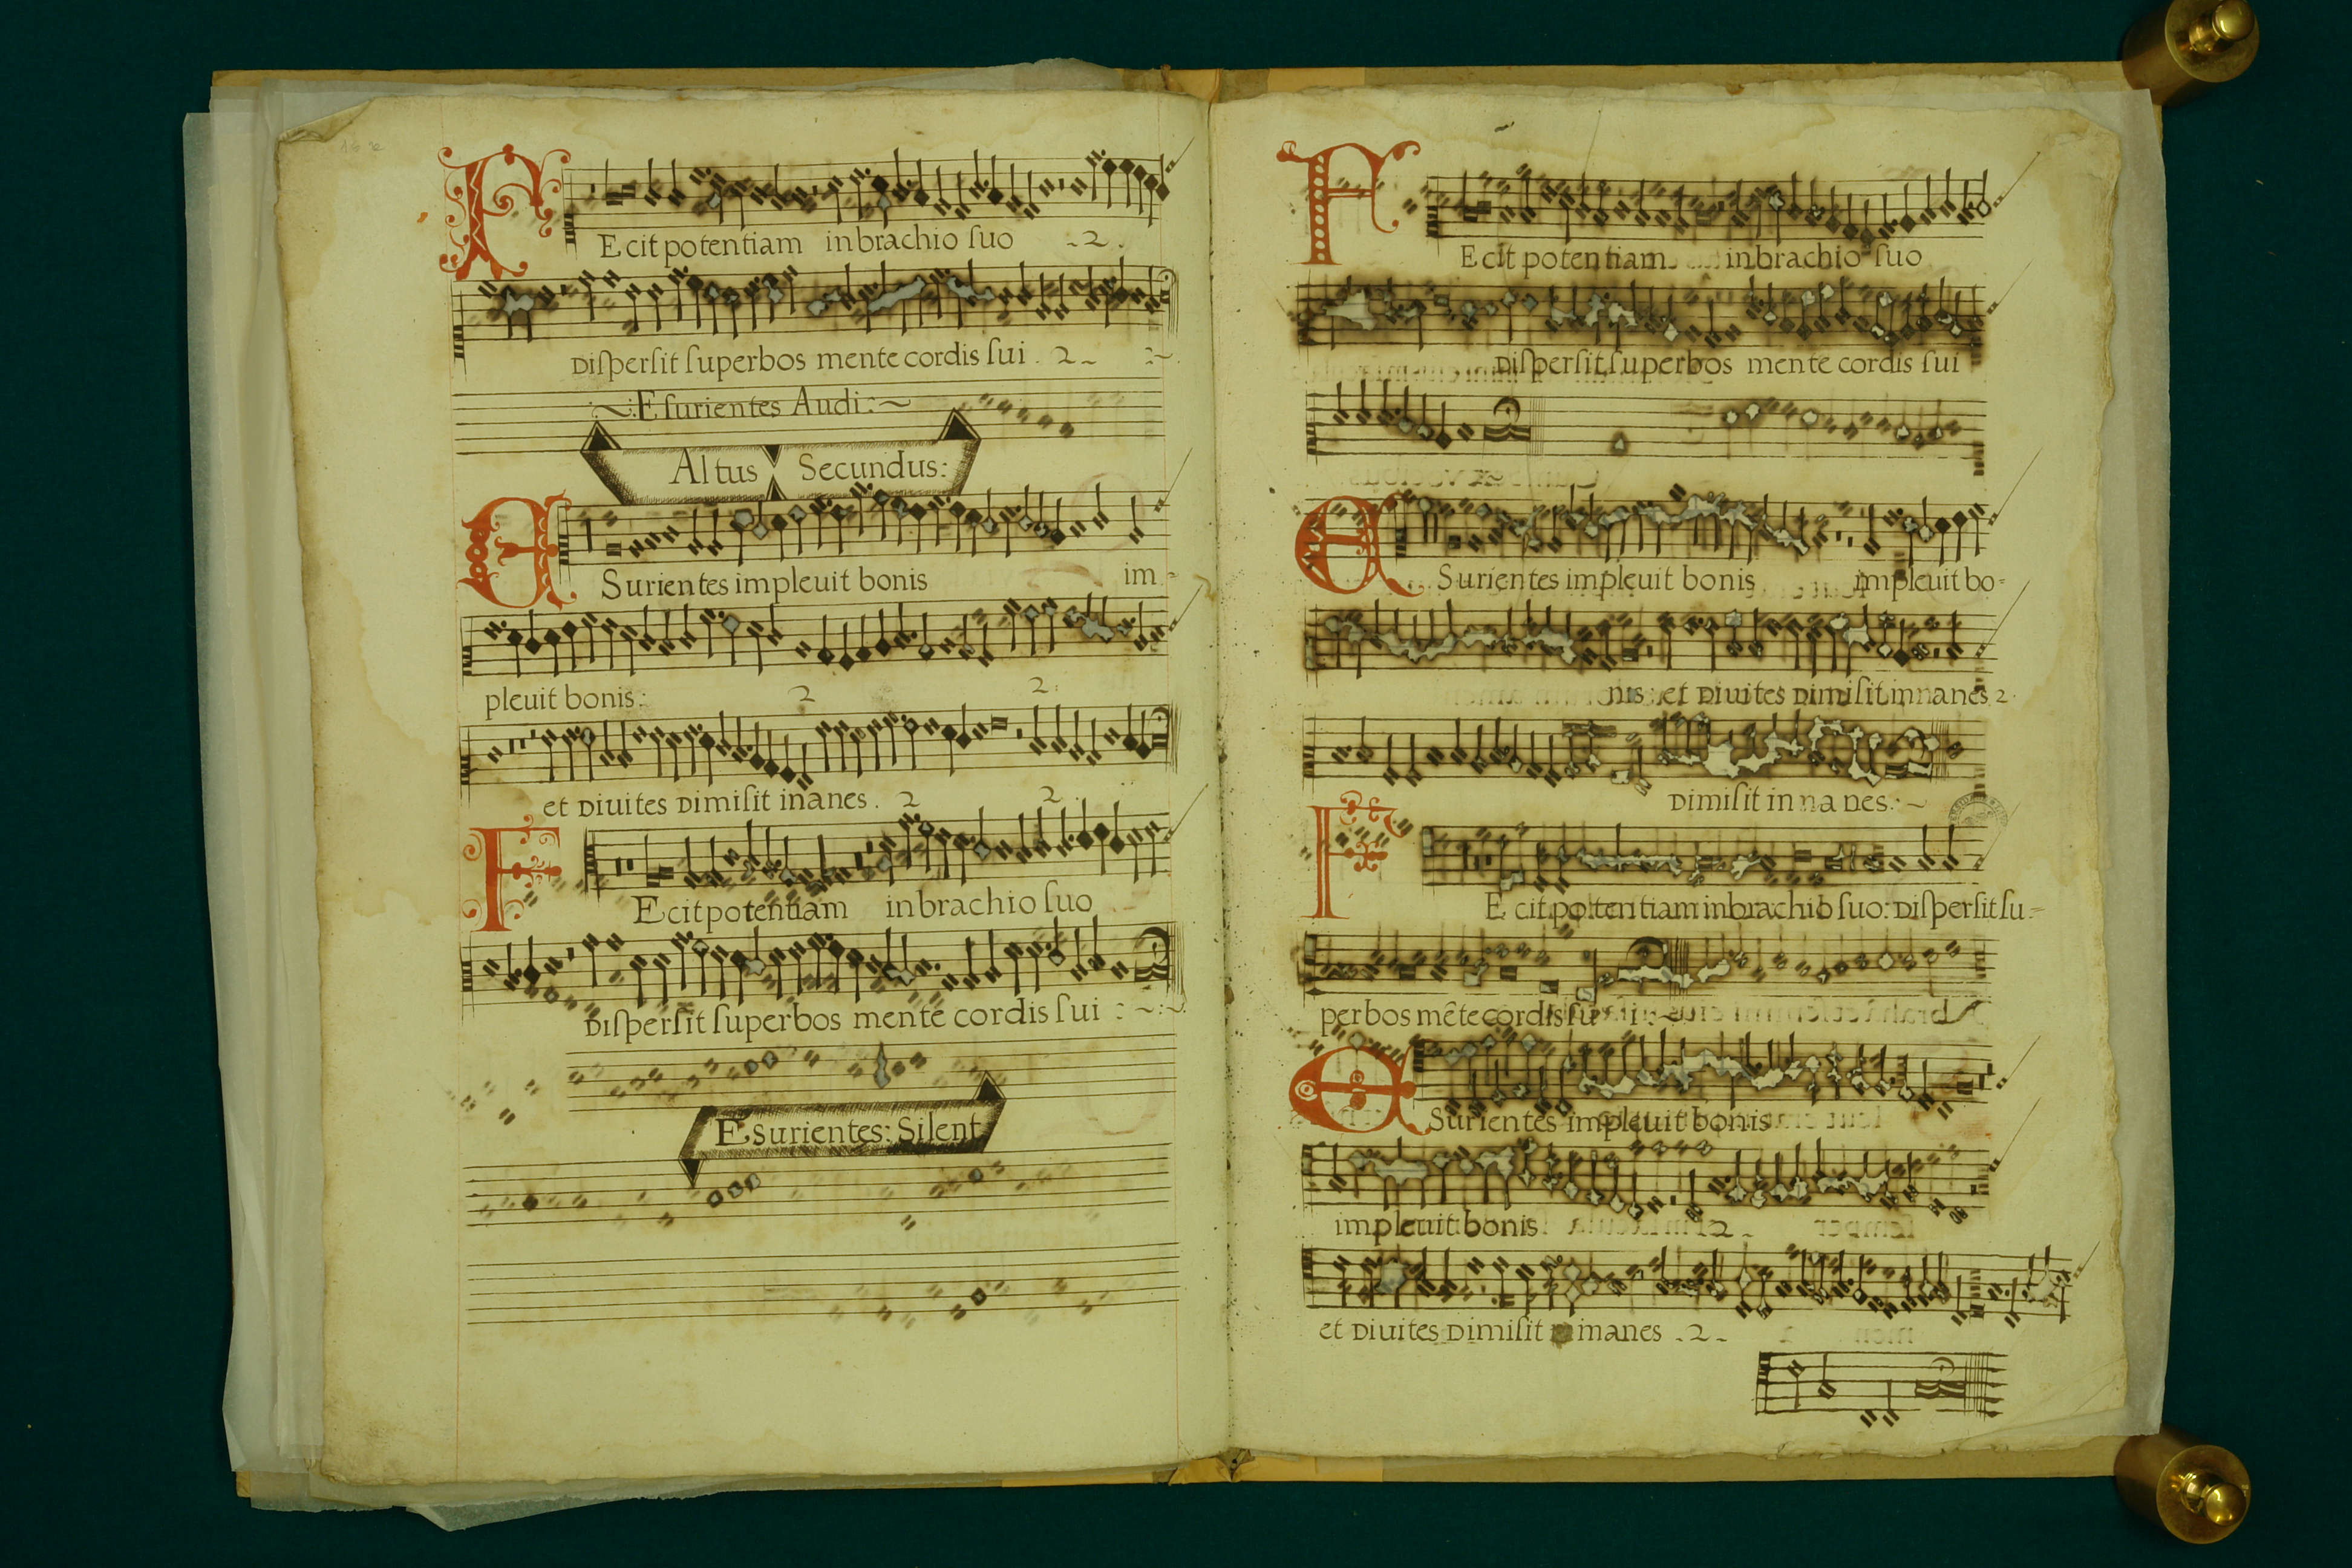 FEcit potentiam in brachio ſuo .2.
Diſperſit ſuperbos mente cordis ſui . 2
Eſurientes Audi:~
Altus Secundus:
ESurientes impleuit bonis im-
pleuit bonis: 2 2.
et Diuites Dimiſit inanes. 2 2.
FEcit potentiam in brachio ſuo
Diſperſit ſuperbos mente cordis ſui :~:~
Esurientes: Silent
FEcit potentiam in brachio ſuo
Diſperſit ſuperbos mente cordis ſui
ESurientes impleuit bonis impleuit bo-
nis: et Diuites Dimiſit innanes 2.
Dimiſit in na nes:~
FEcit potentiam in brachio ſuo: Diſperſit ſu-
perbos mẽte cordis ſu i
ESurientes impleuit bonis
impleuit bonis 2.
et Diuites Dimiſit inanes .2.